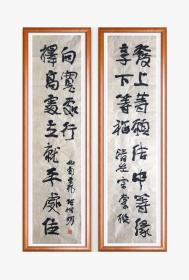 發上等願結中等緣
享下等福
擇高處立就平處住
向寬處行